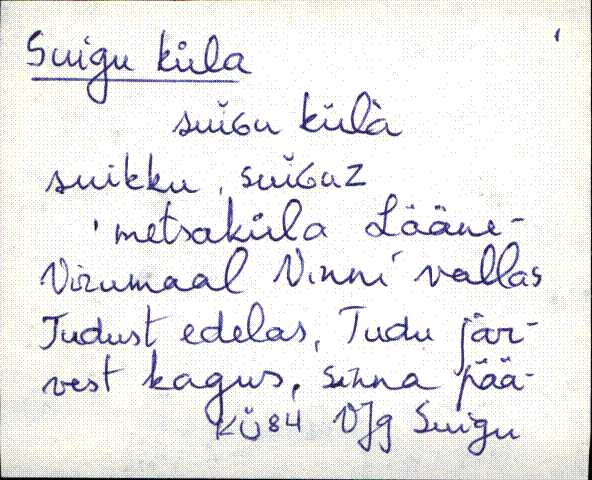 Suigu küla
suĭGu külà
suikku, suĭGuz
'metsaküla Lääne-
Virumaal Vinni vallas
Tudust edelas, Tudu jär-
vest kagus, sinna pää-
KÜ84 VJg Suigu